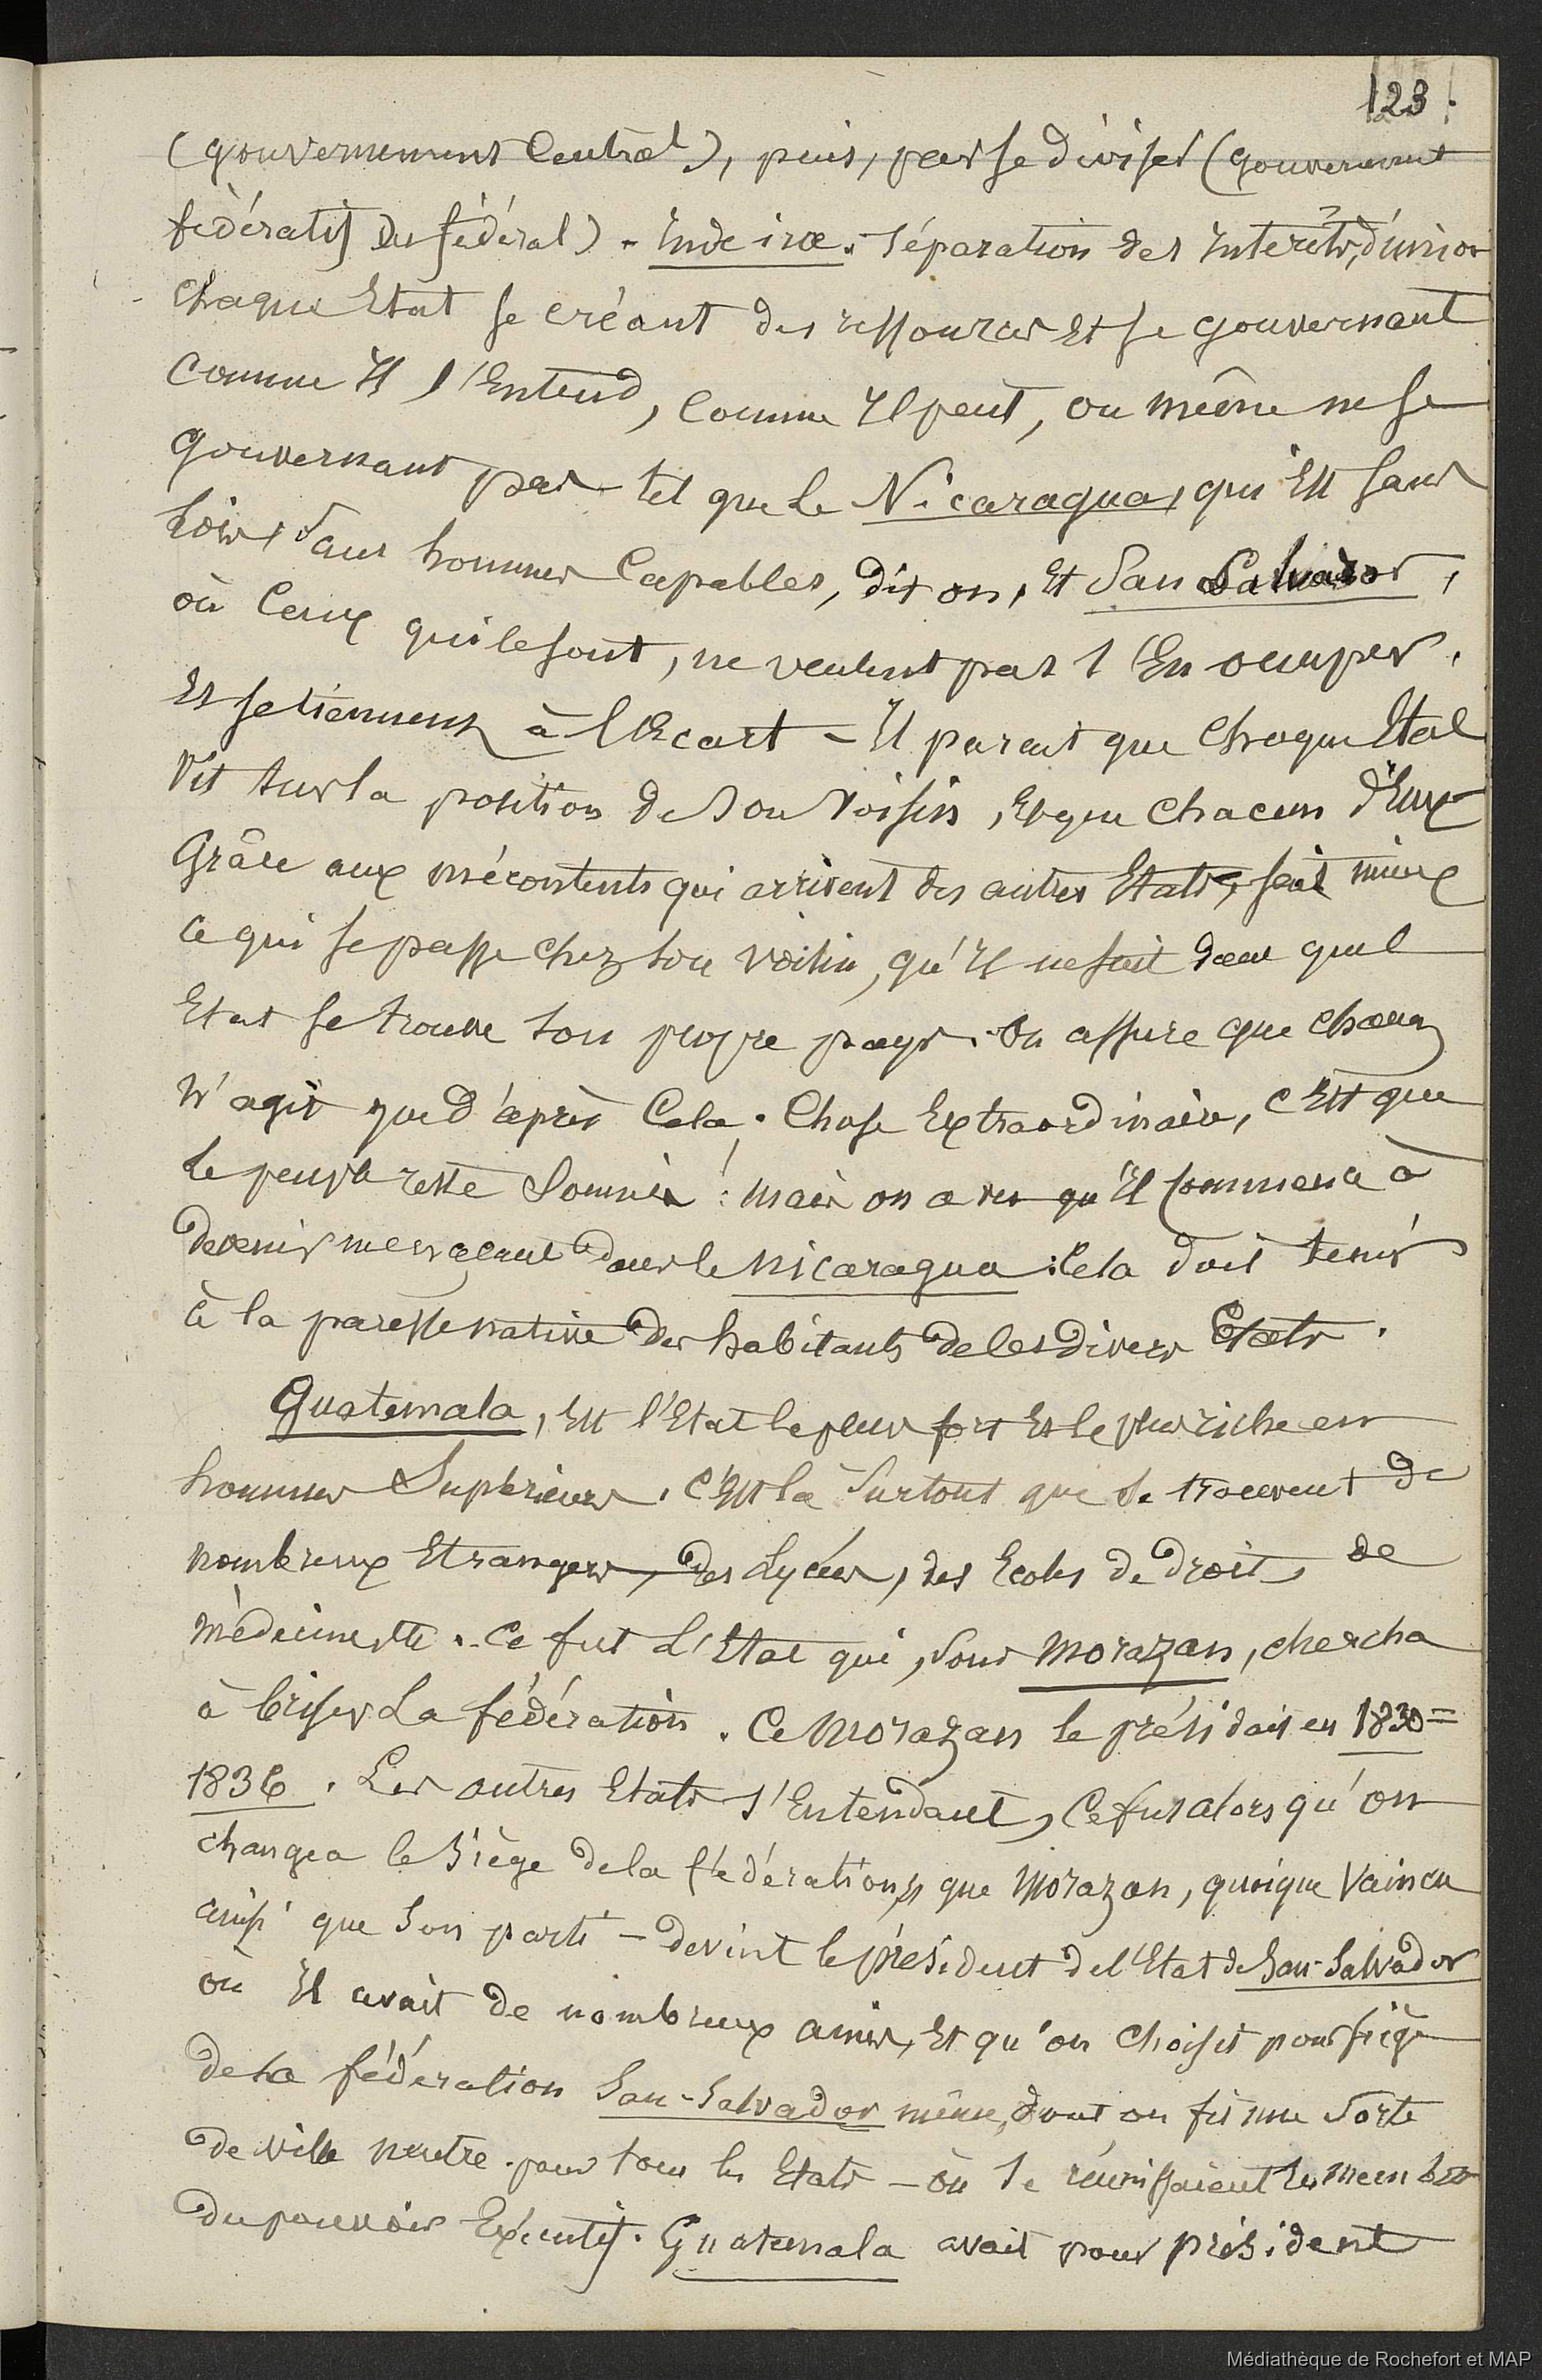 123.
(gouvernement Central), puis, par se diviser (gouvernement
fédératif ou fédéral) - inde iræ. Séparation des Interêts, d'union
chaque Etat se créant des ressources Et se gouvernant
comme Il l'Entend, comme Il peut, ou même ne se
gouvernant pas - tel que le Nicaragua, qui Est sans
Lois, Sans hommes Capables, dit on, Et San Salvador,
où Ceux qui le sont, ne veulent pas s'En occuper,
Et se tiennent à l'Ecart - Il parait que Chaque Etat
Vit sur la position de Son Voisin, Et que Chacun d'Eux
Grâce aux mécontents qui arrivent des autres Etats, sait mieux
ce qui se passe chez son voisin, qu'Il ne sait dans quel
Etat se trouve son propre pays. On assure que Chacun
N'agit que d'après Cela. Chose Extraordinaire, c'Est que
le peuple reste Soumis! mais on a vu qu'Il commence à
devenir menaçant dans le Nicaragua : Cela doit tenir
à la paresse native des habitants de ces divers Etats.
Guatemala, Est l'Etat le plus fort Et le plus riche en
hommes Supérieurs. C'Est là Surtout que se trouvent de
nombreux Etrangers, des Lycées, des Ecoles de droit, de
médecine etc. Ce fut L'Etat qui, Sous Morazan, chercha
à briser La fédération. Ce Morazan le présidait en 1830=
1836. Les autres Etats s'Entendant, Ce fut alors qu'on
changea le Siège de la fédération, Et que Morazan, quoique Vaincu
ainsi que Son parti - devint le président de l'Etat de San-Salvador
où Il avait de nombreux amis, Et qu'on choisit pour siège
de la fédération San-Salvador même, dont on fit une Sorte
de ville neutre pour tous les Etats - où se réunissaient les membres
du pouvoir Exécutif. Guatemala avait pour président
Médiathèque de Rochefort et MAP